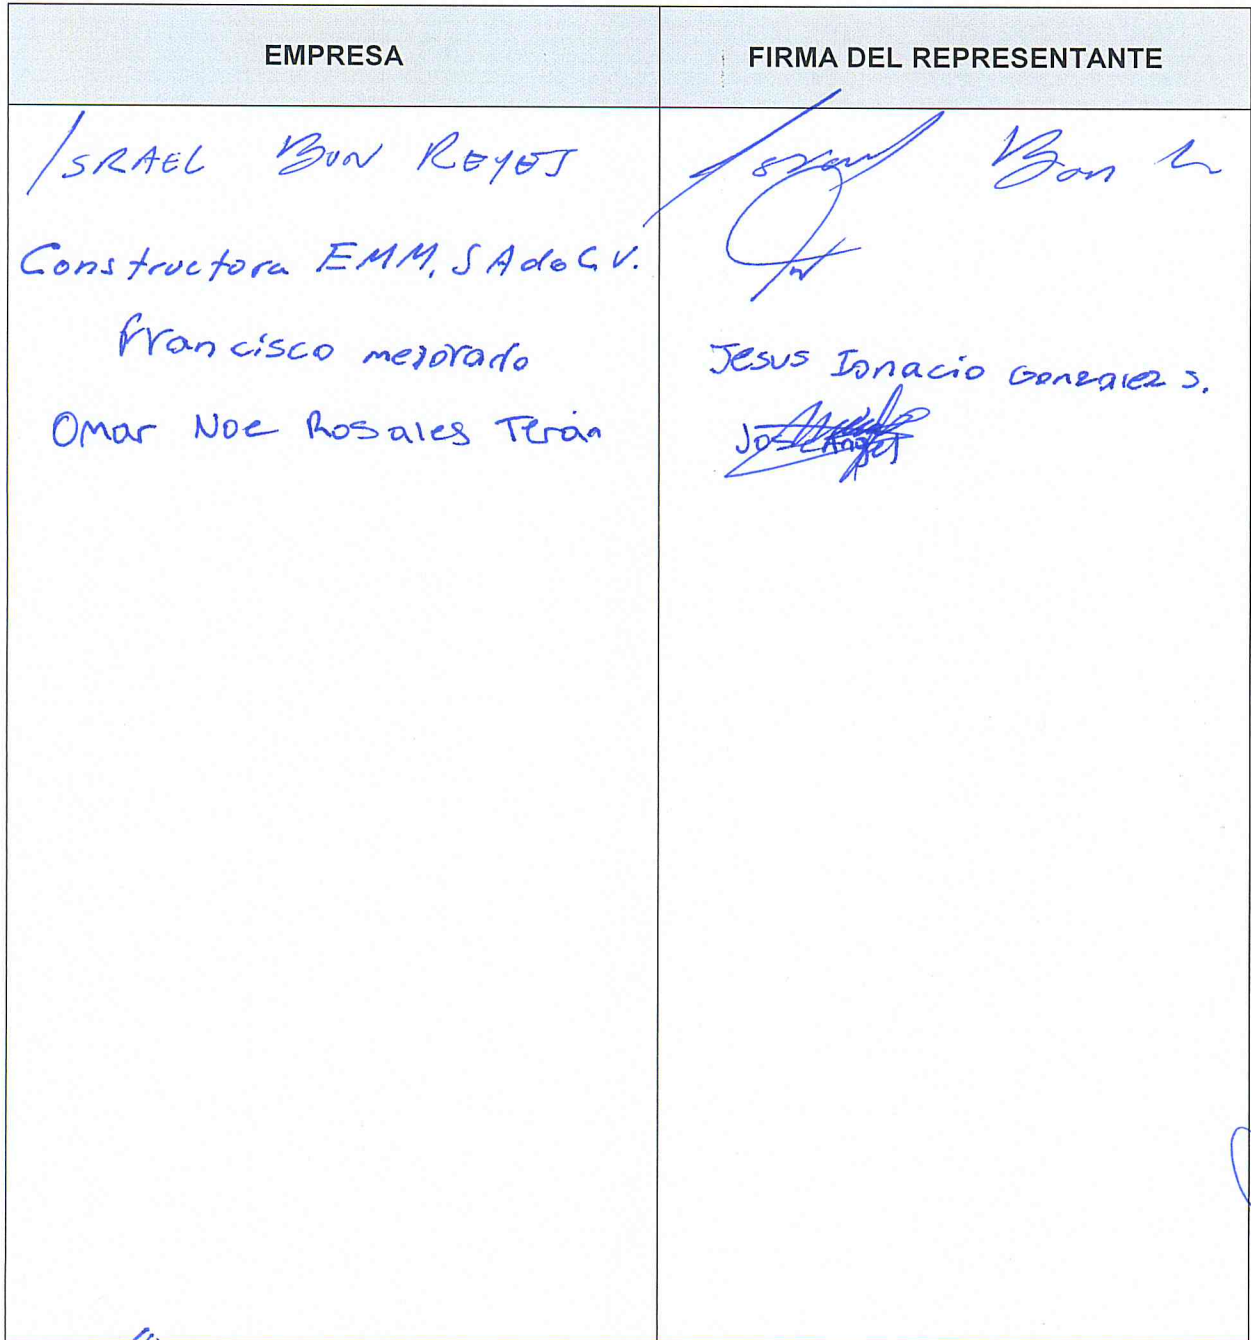 EMPRESA FIRMA DEL REPRESENTANTE
ISRAEL BON REYES Israel Bon
Constructora EMM, SA de C.V.
Francisco mejorado Jesus Ignacio Gonzalez S.
Omar Noe Rosales Terán Jose Angel